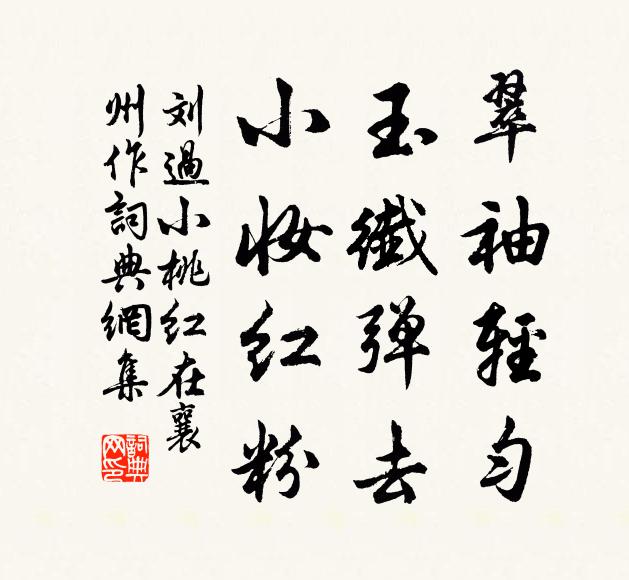 翠袖輕勻
玉纖弹去
小妆红粉
刘過小桃红在襄
州作詞典網集
詞典网印